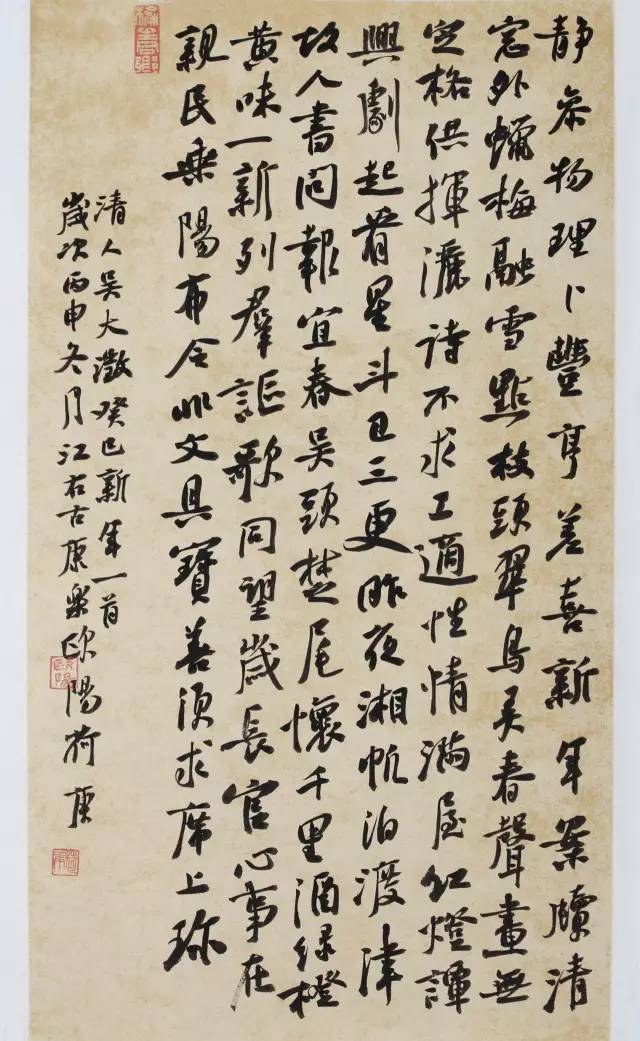 静参物理卜豐亨差喜新年案牘清
窓外蠟梅融雪點枝頭翠鳥弄春聲畫無
定格供揮灑詩不求工適性情滿屋紅燈譚
興劇起看星斗已三更昨夜湘帆泊渡津
故人書問報宜春吴頭楚尾懷千里酒緑橙
黄味一新列羣謳歌同望歲長官心事在
親民乗陽布令非文具寶善須求席上珍
清人吴大澂癸巳新年一首
歲次丙申冬月江右古康樂歐陽荷庚